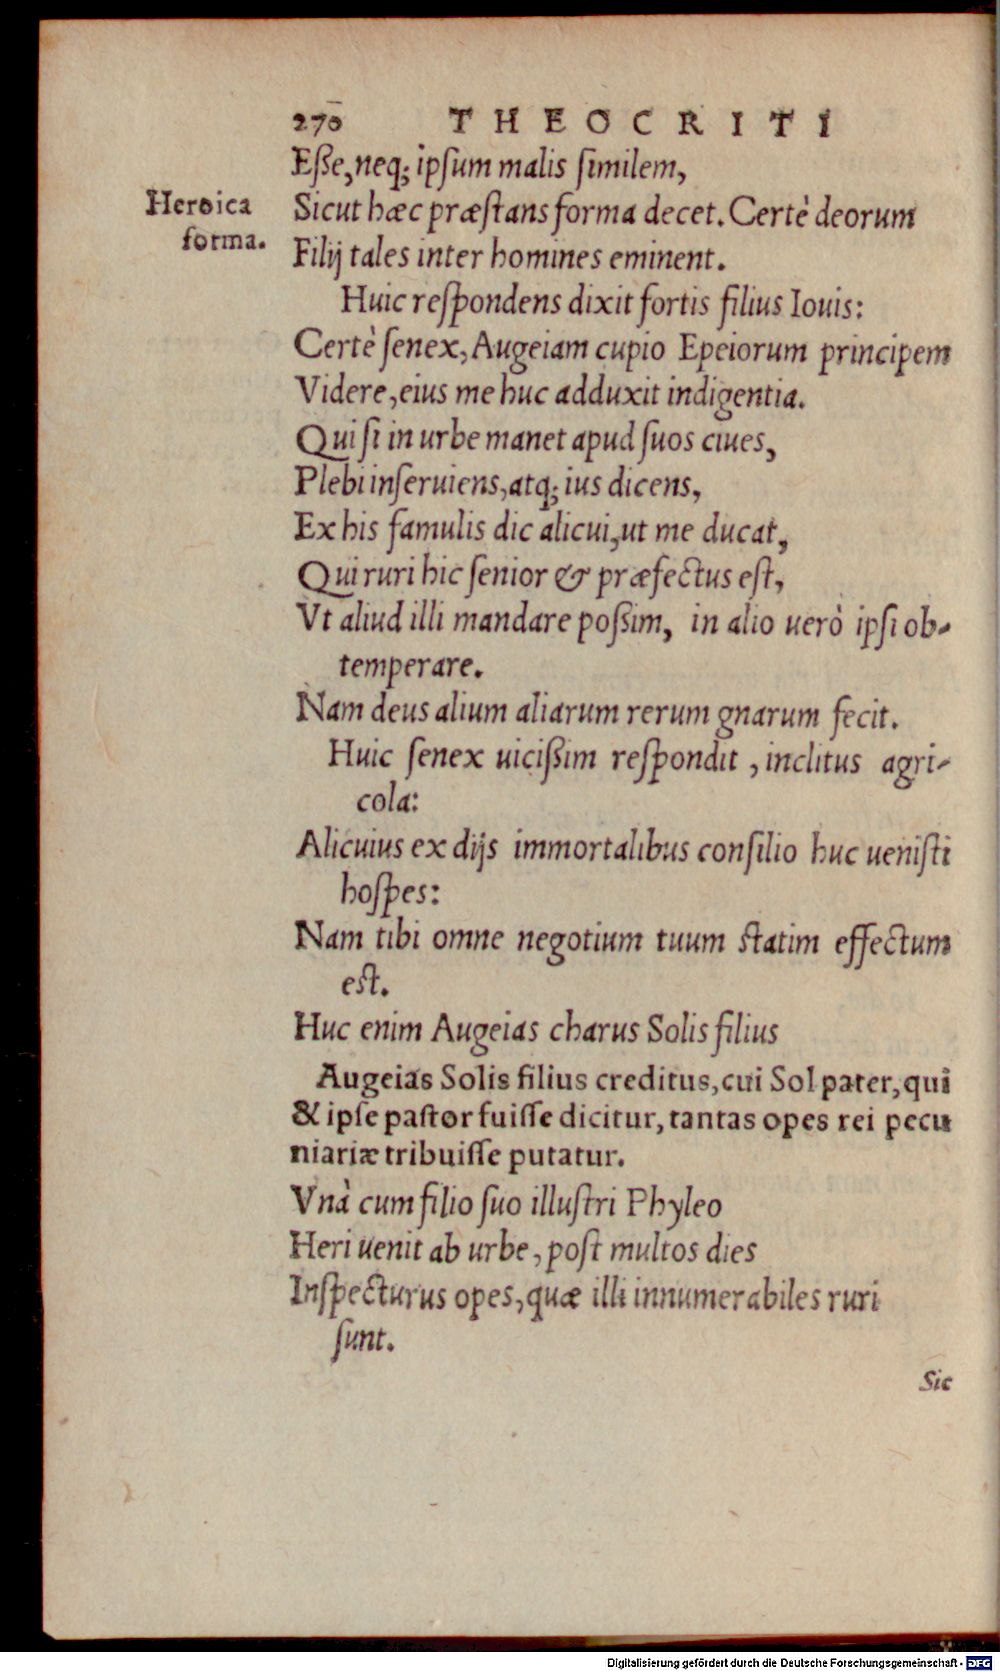 270 THEOCRITI
Eße, neq; ipſum malis ſimilem,
Heroica
forma.
Sicut hæc præſtans forma decet. Certè deorum
Filij tales inter homines eminent.
Huic reſpondens dixit fortis filius Iouis:
Certè ſenex, Augeiam cupio Epeiorum principem
Videre, eius me huc adduxit indigentia.
Qui ſi in urbe manet apud ſuos ciues,
Plebi inſeruiens, atq; ius dicens,
Ex his famulis dic alicui, ut me ducat,
Qui ruri hic ſenior & præfectus eſt,
Vt aliud illi mandare poßim, in alio uerò ipſi ob-
temperare.
Nam deus alium aliarum rerum gnarum fecit.
Huic ſenex uicißim reſpondit, inclitus agri-
cola:
Alicuius ex dijs immortalibus conſilio huc ueniſti
hoſpes:
Nam tibi omne negotium tuum ſtatim effectum
eſt.
Huc enim Augeias charus Solis filius
Augeias Solis filius creditus, cui Sol pater, qui
& ipſe paſtor fuiſſe dicitur, tantas opes rei pecu
niariæ tribuiſſe putatur.
Vnà cum filio ſuo illuſtri Phyleo
Heri uenit ab urbe, poſt multos dies
Inſpecturus opes, quæ illi innumerabiles ruri
ſunt.
Sic
Digitalisierung gefördert durch die Deutsche Forschungsgemeinschaft - DFG